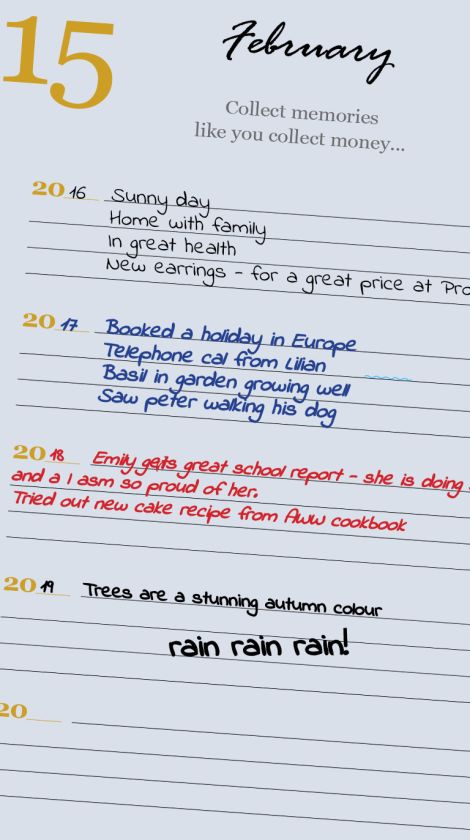 15
February
Collect memories
like you collect money...
2016 Sunny day
Home with family
In great health
New earrings - for a great price at
2017 Booked a holiday in Europe
Telephone cal from Lilian
Basil in garden growing well
Saw peter walking his dog
2018 Emily great school report - she is doing
and a I asm so proud of her.
Tried out new cake recipe from AWW cookbook
2019 Trees are a stunning autumn colour
rain rain rain!
20